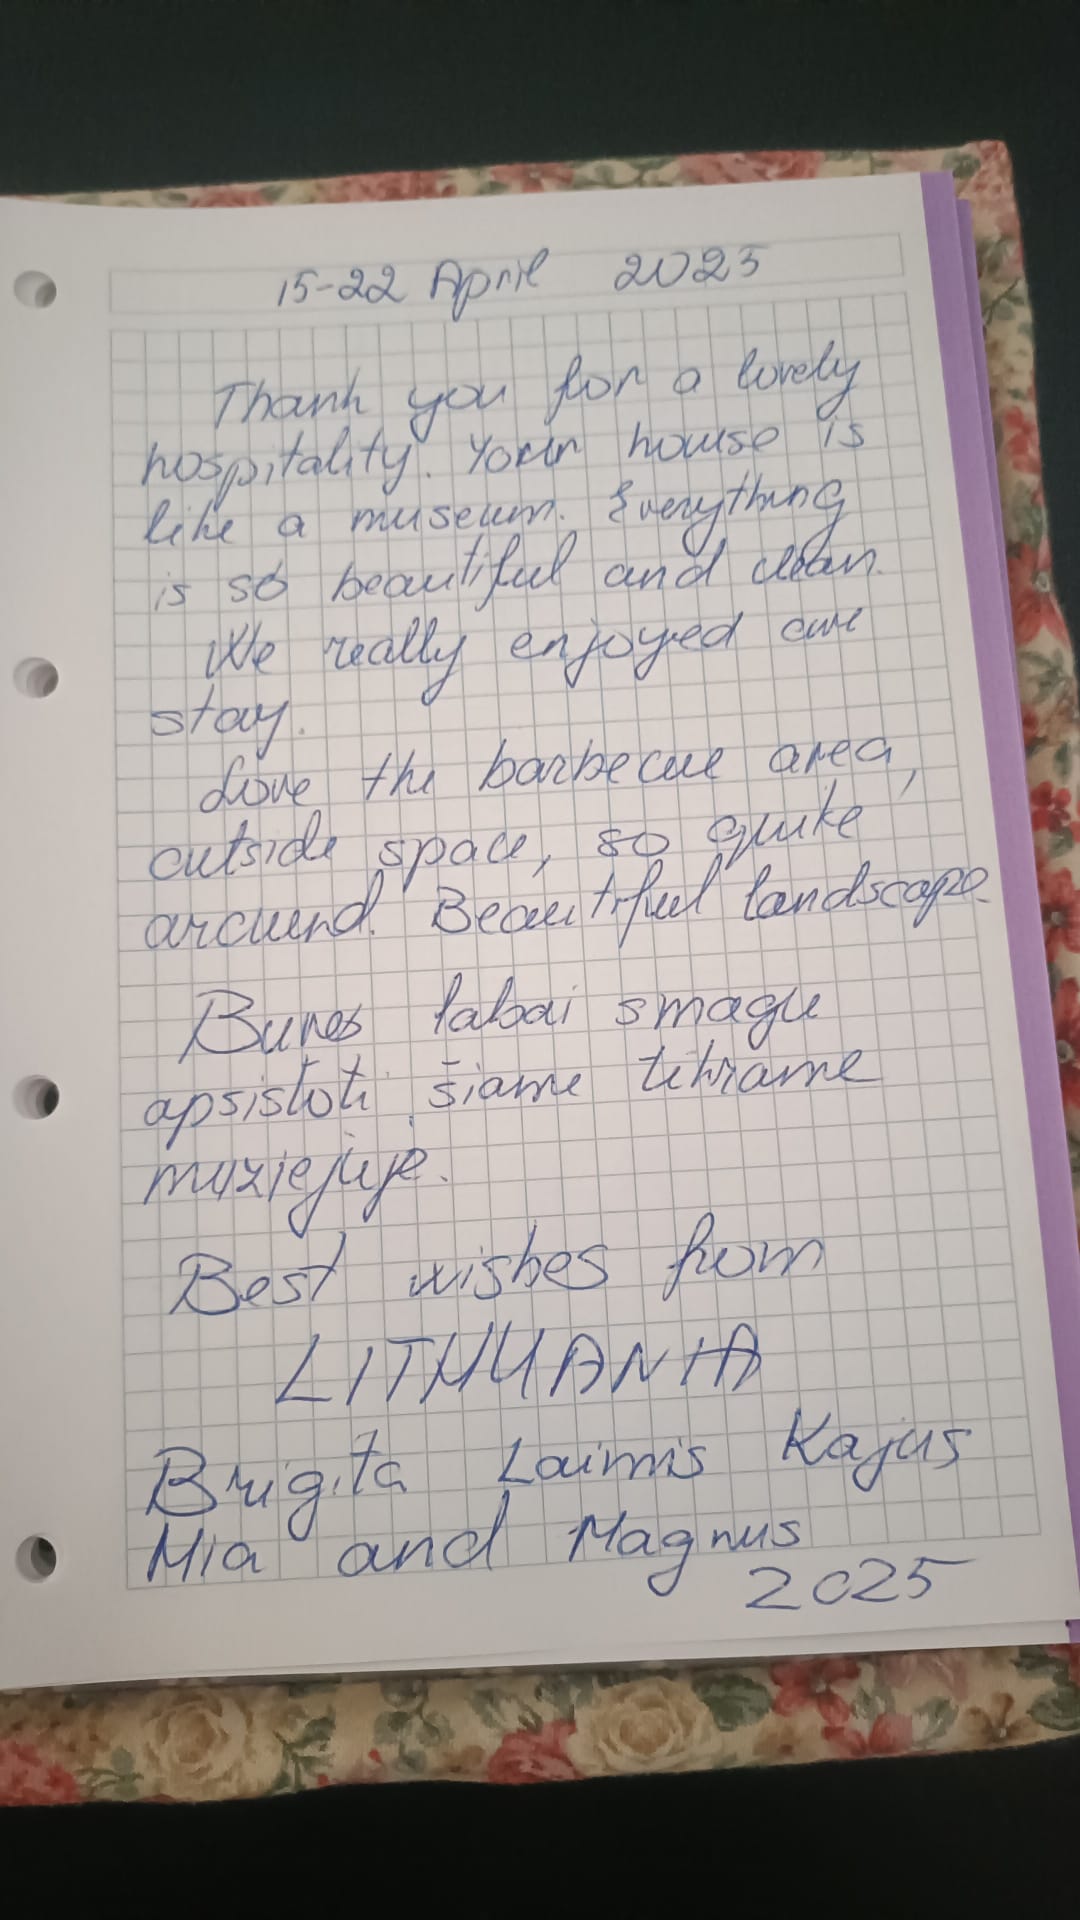 15-22 April 2025
Thank you for a lovely
hospitality. Your house is
like a museum. Everything
is so beautiful and clean.
We really enjoyed our
stay.
Love the barbecue area,
outside space, so quite
around. Beautiful landscape.
labai smagu
apsistoti šiame tikrame
muziejuje.
Best wishes from
LITHUANIA
Brigita Laimis Kajus
Mia and Magnus
2025